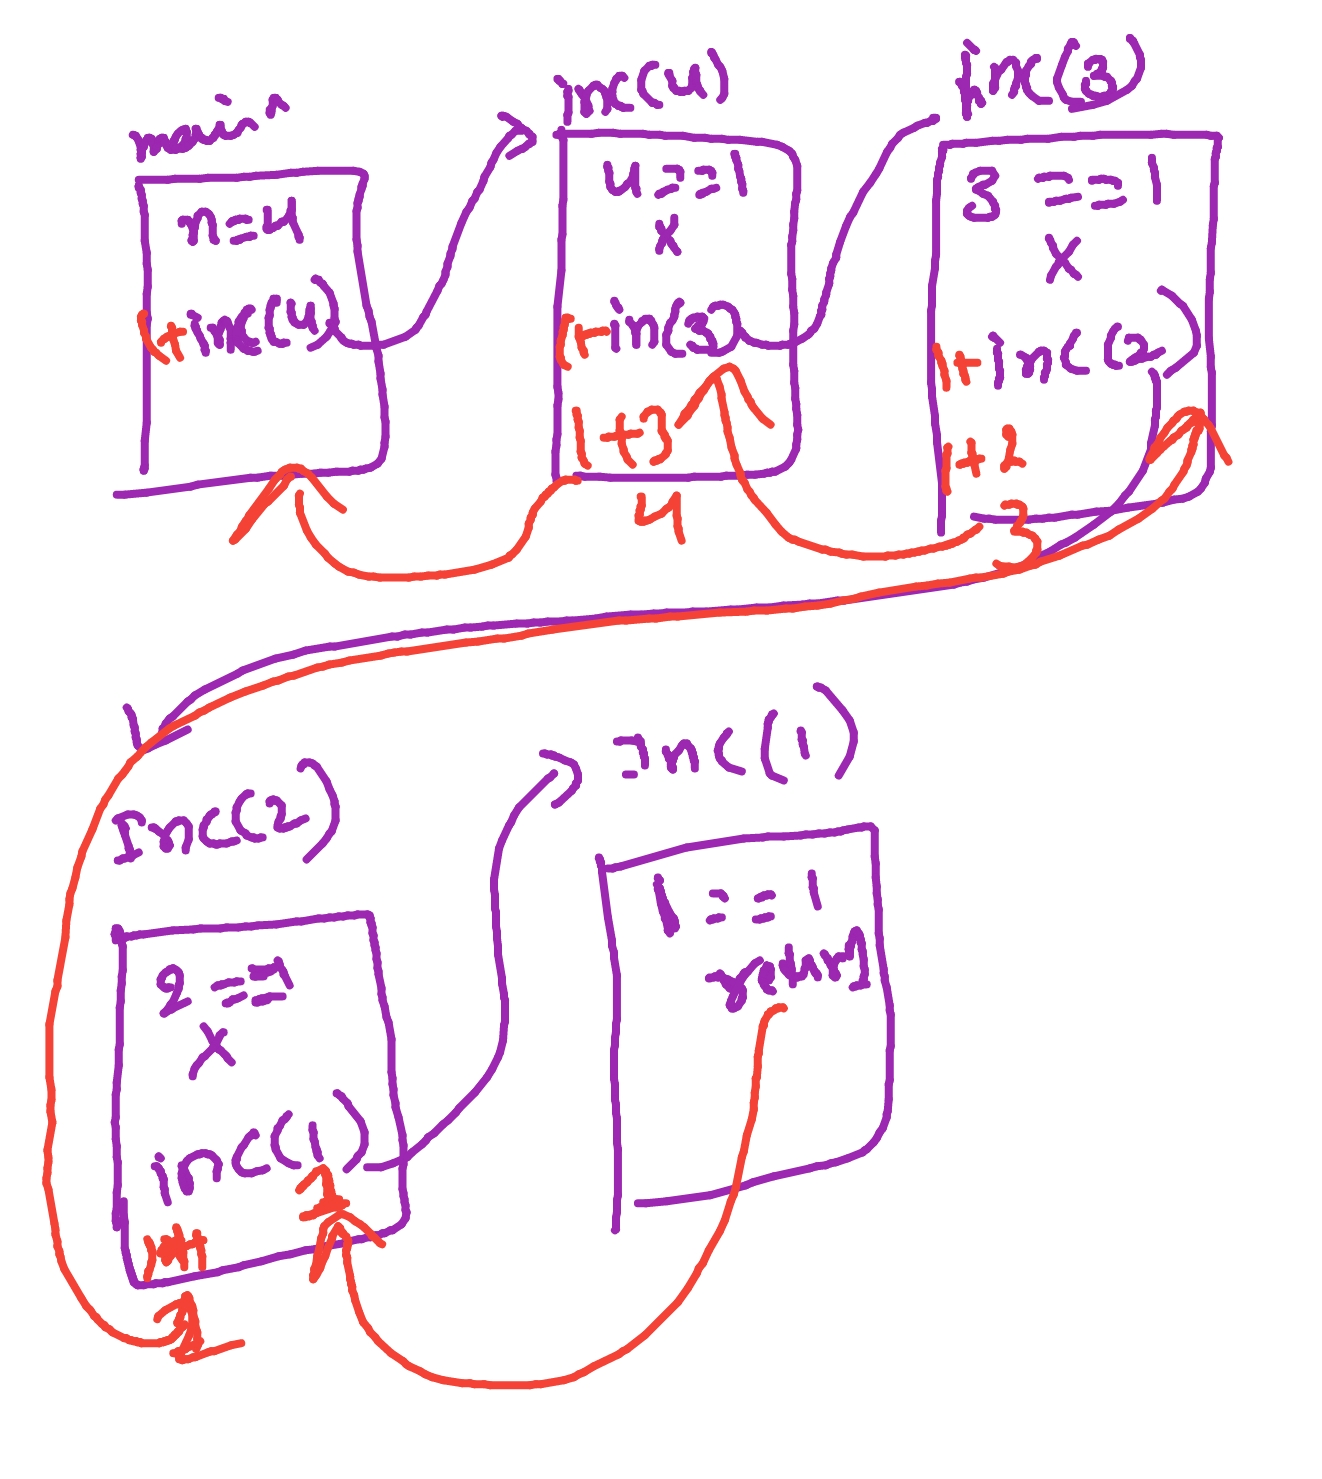 main
n=4
1+inc(4)
inc(4)
4==1
x
1+in(3)
1+3
4
inc(3)
3 ==1
x
1+inc(2)
1+2
3
Inc(2)
2 ==1
x
inc(1)
1
Inc(1)
1 ==1
return